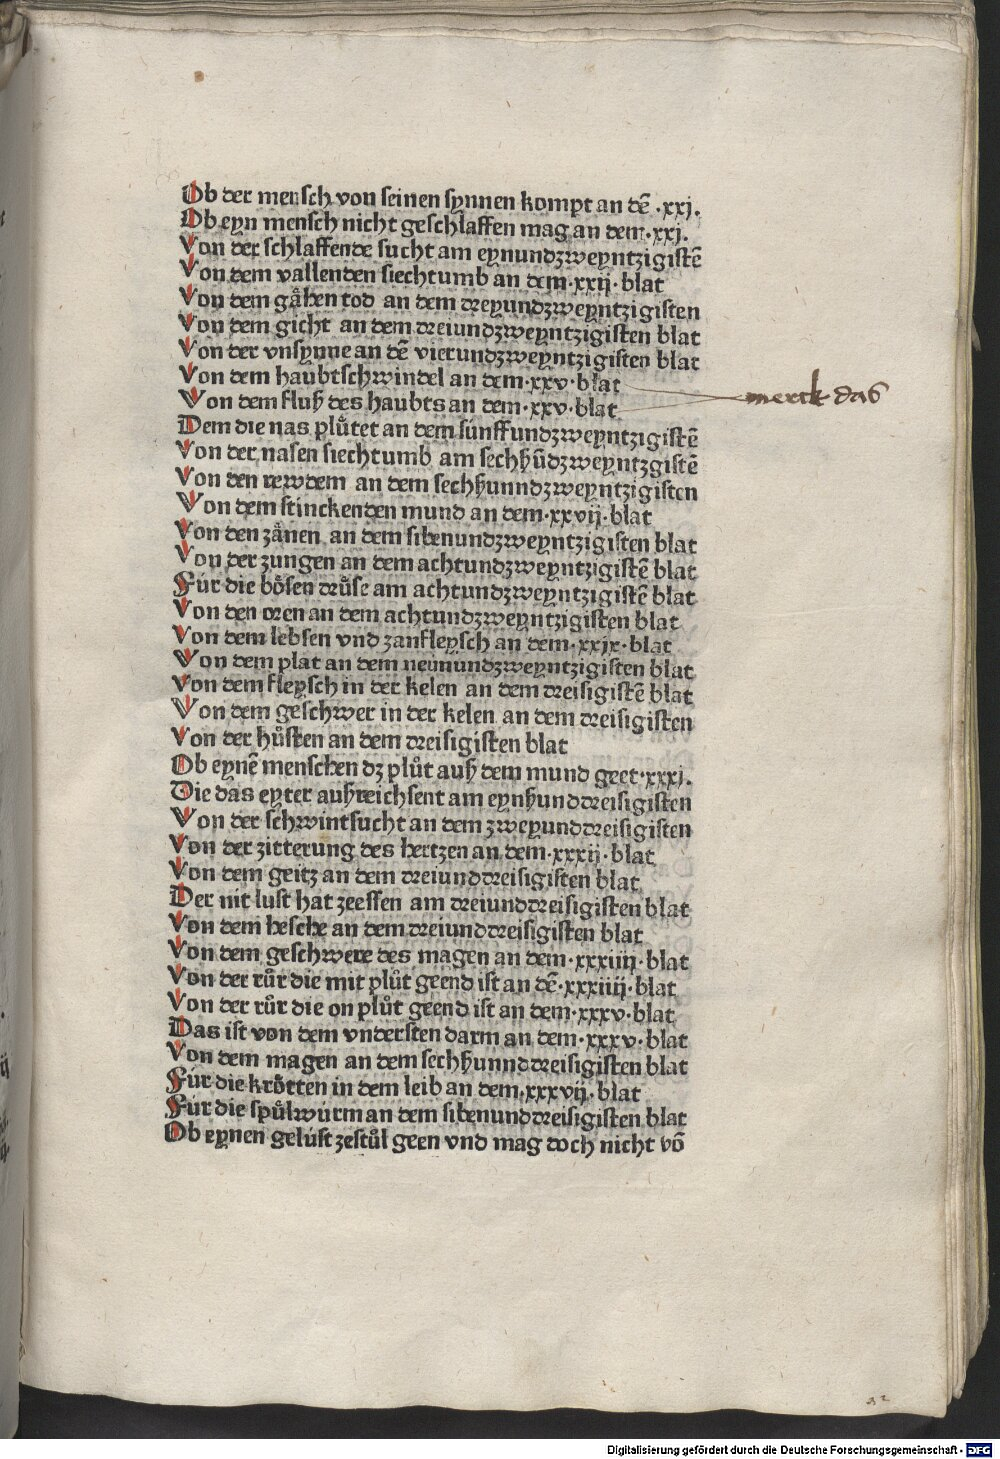 Ob der mensch von seinen synnen kompt an dē .xxj.
Ob eyn mensch nicht geschlaffen mag an dem .xxj.
Von der schlaffende sucht am eynundzweyntzigistē
Von dem vallenden siechtumb an dem .xxij. blat
Von dem gåhen tod an dem dreyundzweyntzigisten
Von dem gicht an dem dreiundzweyntzigisten blat
Von der vnsynne an dē vierundzweyntzigisten blat
Von dem haubtschwindel an dem .xxv. blat
merck das
Von dem fluß des haubts an dem .xxv. blat
Dem die nas plůtet an dem fünffundzweyntzigistē
Von der nasen siechtumb am sechßūdzweyntzgistē
Von den rewdem an dem sechßunndzweyntzigisten
Von dem stinckenden mund an dem .xxvij. blat
Von den zånen an dem sibenundzweyntzigisten blat
Von der zungen an dem achtundzweyntzigistē blat
Für die bősen drůse am achtundzweyntzigistē blat
Von den oren an dem achtundzweyntzigisten blat
Von dem lebsen vnd zanfleysch an dem .xxix. blat
Von dem plat an dem neünundzweyntzigisten blat
Von dem fleysch in der kelen an dem dreisigistē blat
Von dem geschwer in der kelen an dem dreisigisten
Von der hůsten an dem dreisigisten blat
Ob eynē menschen dz plůt auß dem mund geet .xxxj.
Die das eyter außreichsent am eynßunddreisigisten
Von der schwintsucht an dem zweyunddreisigisten
Von der zitterung des hertzen an dem .xxxij. blat
Von dem geitz an dem dreiunddreisigisten blat
Der nit lust hat zeessen am dreiunddreisigisten blat
Von dem hesche an dem dreiunddreisigisten blat
Von dem geschwere des magen an dem .xxxiiij. blat
Von der růr die mit plůt geend ist an dē .xxxiiij. blat
Von der růr die on plůt geend ist an dem .xxxv. blat
Das ist von dem vndersten darm an dem .xxxv. blat
Von dem magen an dem sechßunnddreisigisten blat
Für die krőtten in dem leib an dem .xxxvij. blat
Für die spůlwürm an dem sibenunddreisigisten blat
Ob eynen gelüst zestůl geen vnd mag doch nicht vō
32
Digitalisierung gefördert durch die Deutsche Forschungsgemeinschaft - DFG